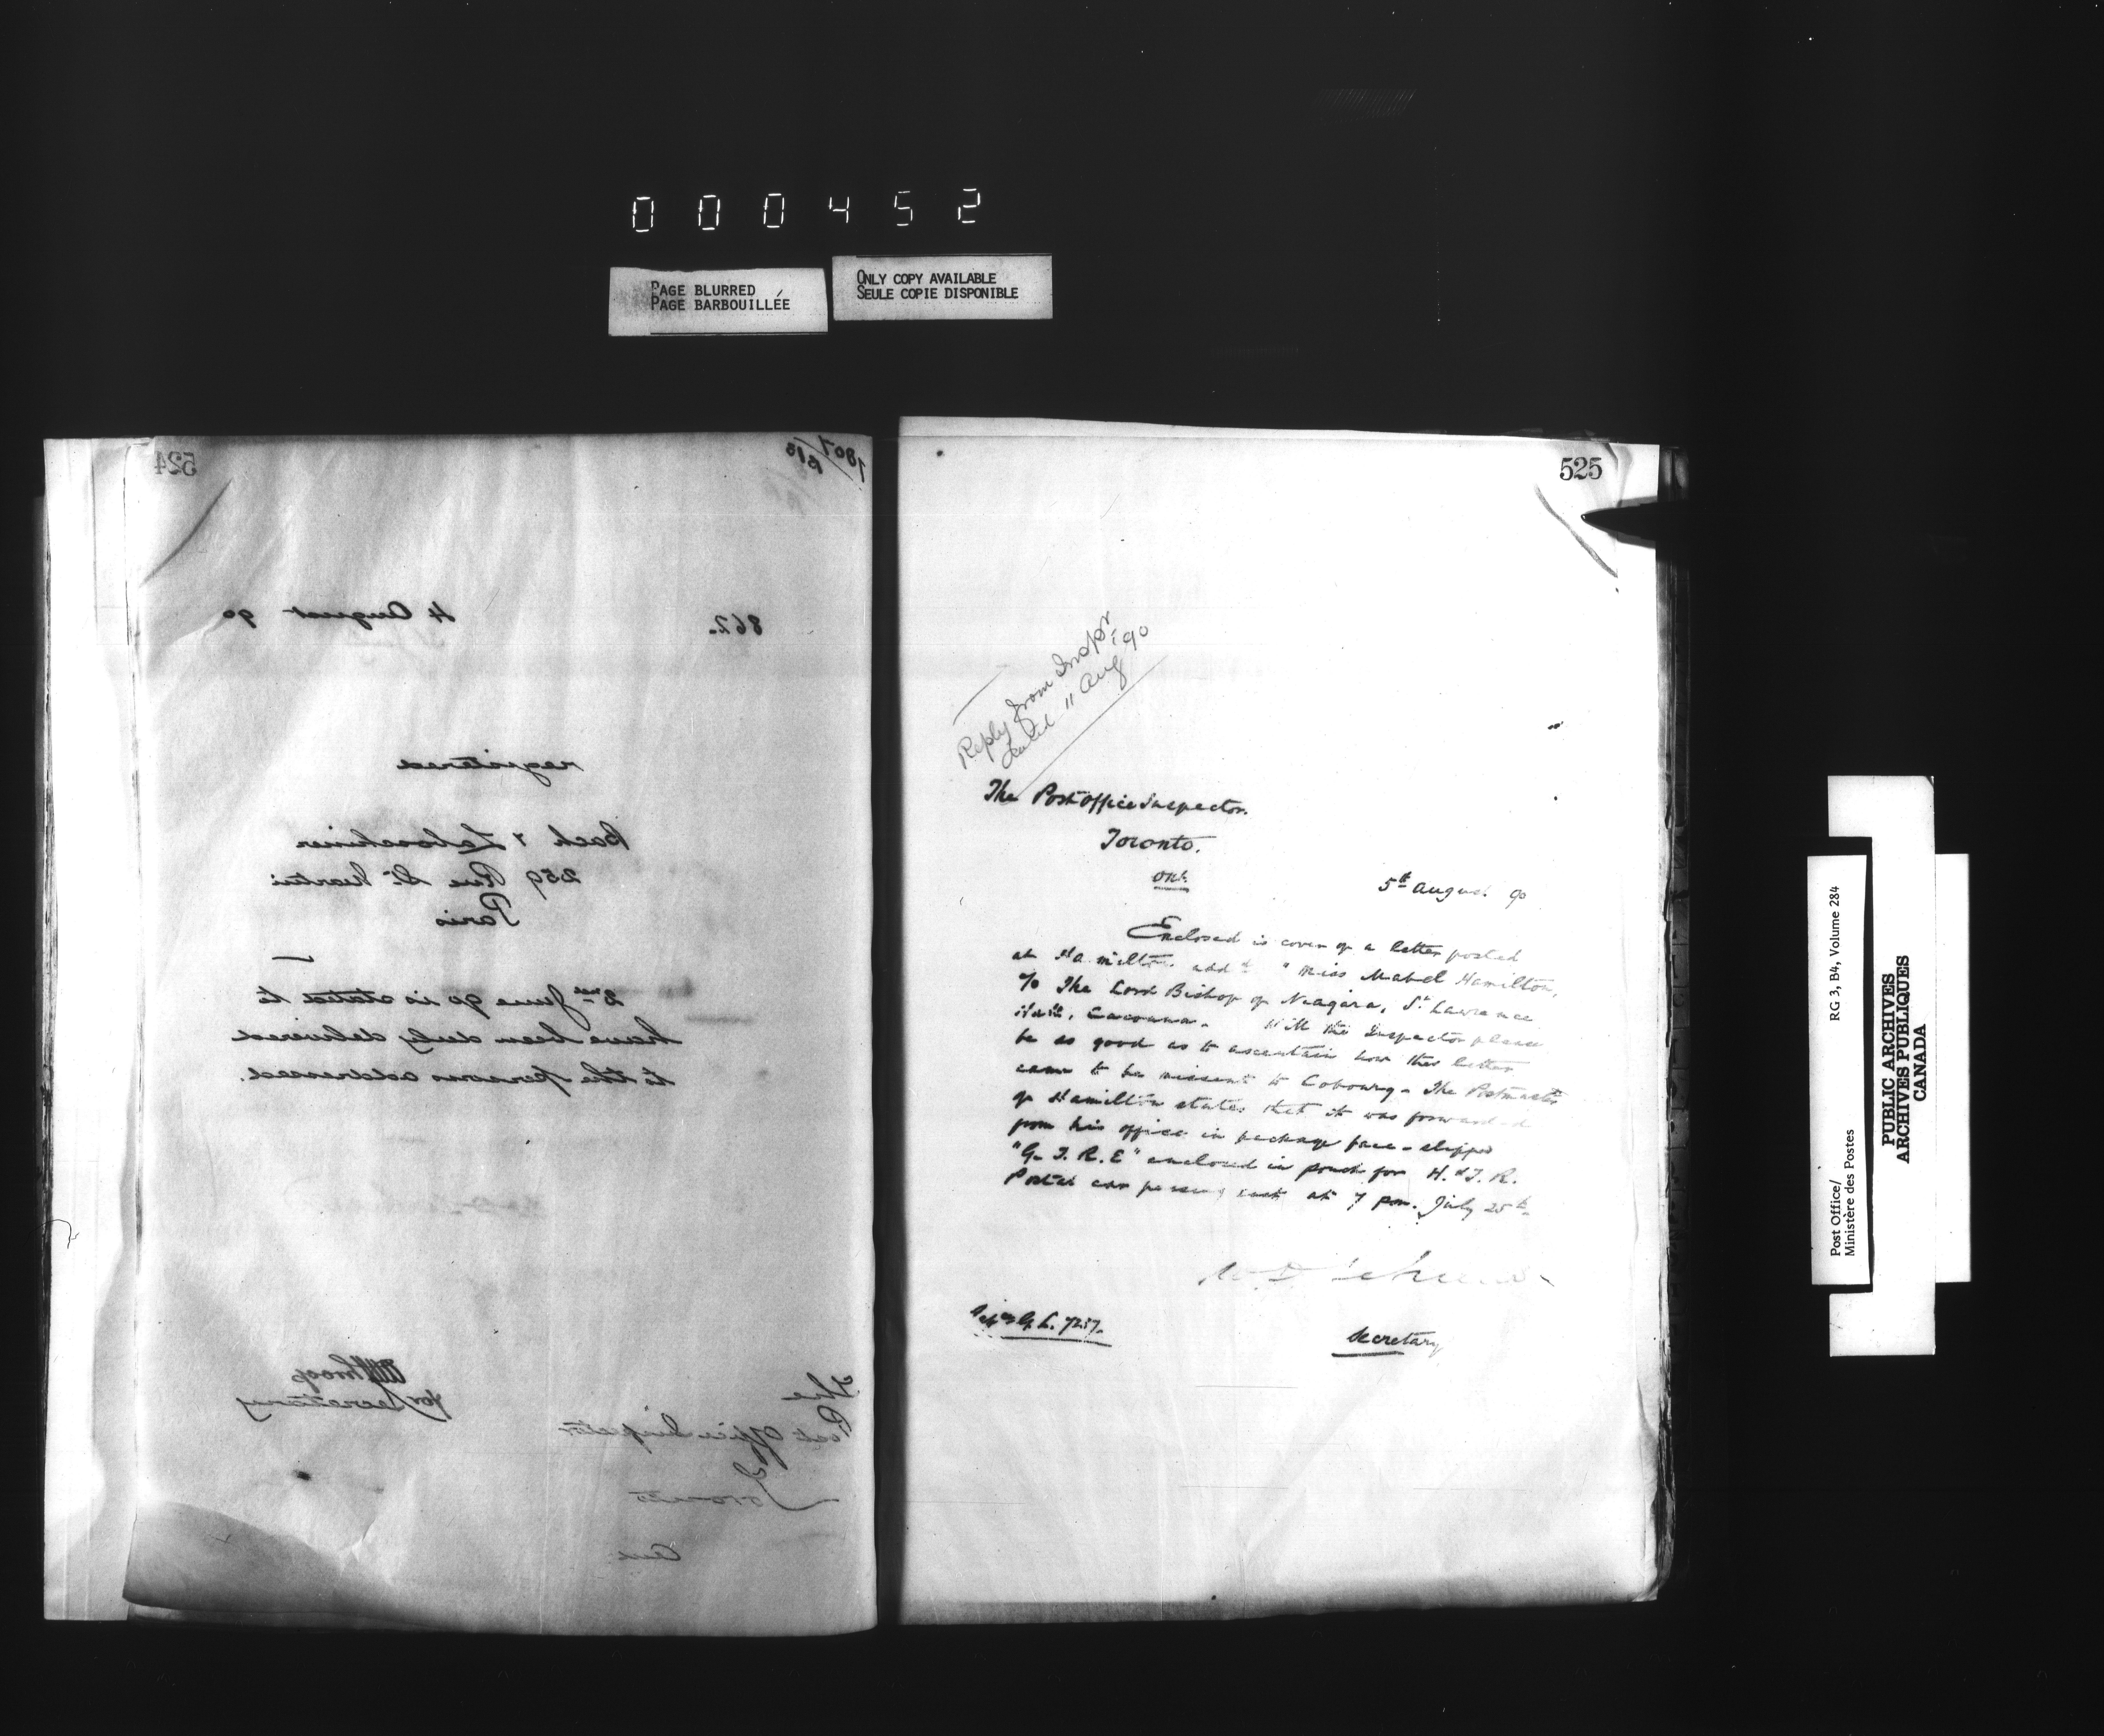 000452
PAGE BLURRED
PAGE BARBOUILLÉE
ONLY COPY AVAILABLE
SEULE COPIE DISPONIBLE
524
1807
862.
4 August 90
registered
Bach &
259 Rue St. Martin
Paris
June 90 is stated to
have been duly delivered
to the persons addressed.
for Secretary
The
Post Office Inspector
Toronto
525
Reply from Inspr
dated 11 Aug '90
The Post Office Inspector.
Toronto.
Ont.
5th August 90
Enclosed is cover of a letter posted
at Hamilton add'd "Miss Mabel Hamilton,
c/o The Lord Bishop of Niagara, St. Lawrence
Hall, Cacouna. Will the Inspector please
be so good as to ascertain how this letter
came to be missent to Cobourg - The Postmaster
of Hamilton states that it was forwarded
from his office in package face-slipped
"G. T. R. E" enclosed in pouch for H. & T. R.
Postal car passing east at 7 pm. July 25th
Secretary
Post Office/ RG 3, B4, Volume 284
Ministère des Postes
PUBLIC ARCHIVES
ARCHIVES PUBLIQUES
CANADA